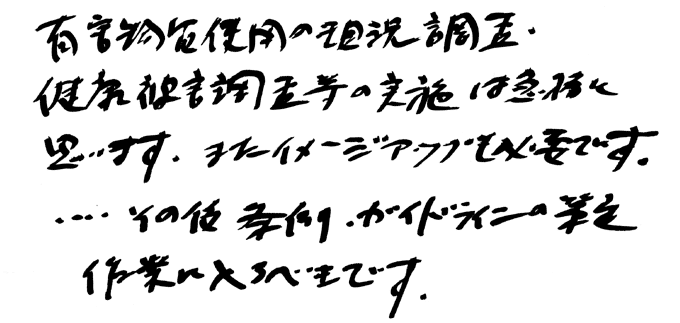 有害物質使用の現況調査・
健康被害調査等の実施は急務と
思います。またイメージアップも必要です。
‥‥その他 条例・ガイドラインの策定
作業に入るべきです。